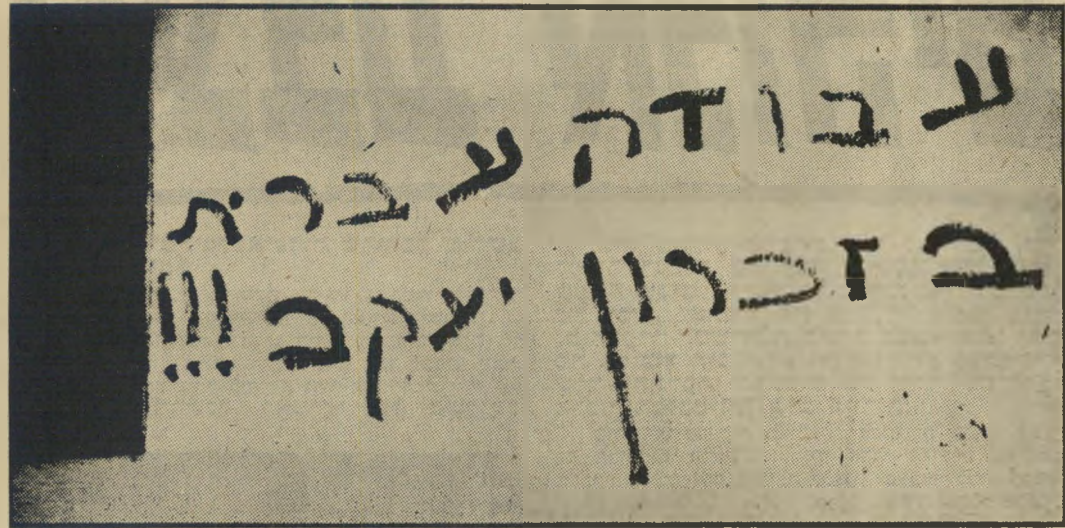 עבודה עברית
בזכרון יעקב!!!